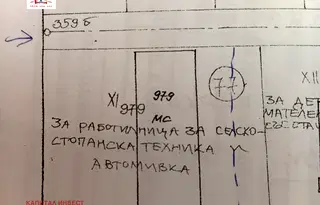 959 б
XI 979
979
МС
77
XII
ЗА РАБОТИЛНИЦА ЗА СЕЛСКО-
СТОПАНСКА ТЕХНИКА И
АВТОМИВКА
ЗА ДЕР
МАТЕЛЕН
КАПИТАЛ ИНВЕСТ